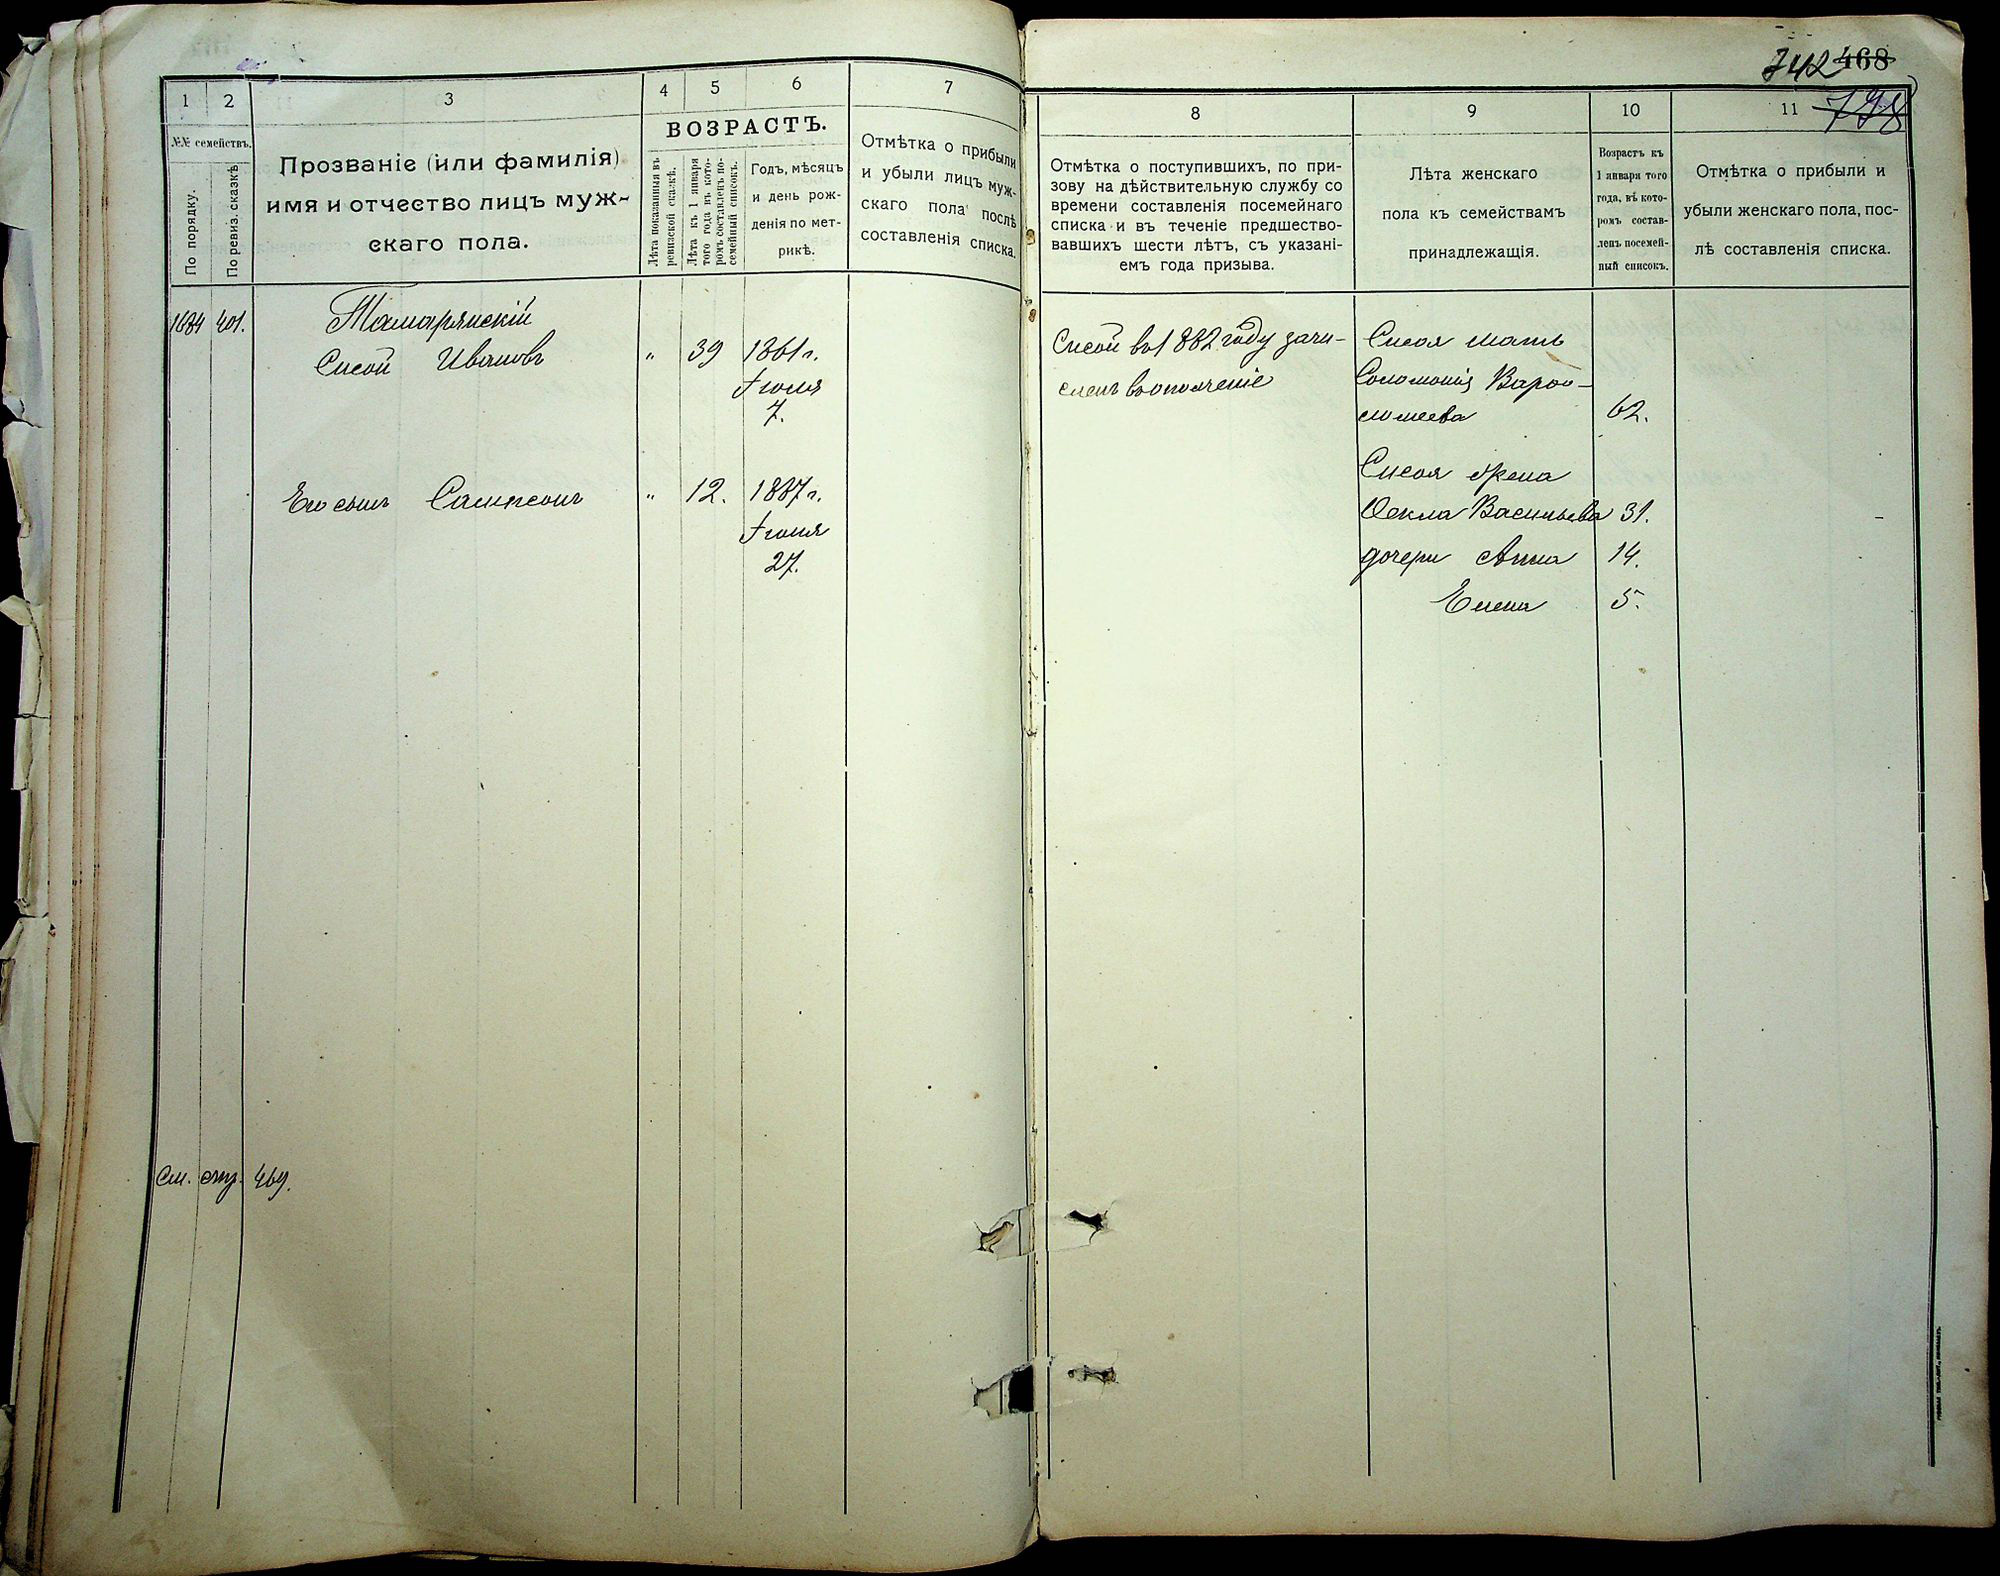 742 468
798
1 2 3 4 5 6 7
№№ семействъ.
По порядку.
По ревиз. сказкѣ
Прозваніе (или фамилія)
имя и отчество лицъ муж-
скаго пола.
ВОЗРАСТЪ.
Лѣта показанныя въ
ревизской сказкѣ.
Лѣта къ 1 января
того года въ кото-
ромъ составленъ по-
семейный списокъ.
Годъ, мѣсяцъ
и день рож-
денія по мет-
рикѣ.
Отмѣтка о прибыли
и убыли лицъ муж-
скаго пола послѣ
составленія списка.
1684 401.
Тамарянскій
Сисой Ивановъ „ 39 1861 г.
Іюля
7.
Его сынъ Сампсонъ „ 12. 1887 г.
Іюня
27.
См. стр. 469.
8 9 10 11
Отмѣтка о поступившихъ, по при-
зову на дѣйствительную службу со
времени составленія посемейнаго
списка и въ теченіе предшество-
вавшихъ шести лѣтъ, съ указані-
емъ года призыва.
Лѣта женскаго
пола къ семействамъ
принадлежащія.
Возрастъ къ
1 января того
года, въ кото-
ромъ состав-
ленъ посемей-
ный списокъ.
Отмѣтка о прибыли и
убыли женскаго пола, пос-
лѣ составленія списка.
Сисой въ 1882 году зачи-
сленъ въ ополченіе
Сисоя мать
Соломонія Варѳо-
ломеева 62.
Сисоя жена
Ѳекла Васильева 31.
дочери Анна 14.
Елена 5.